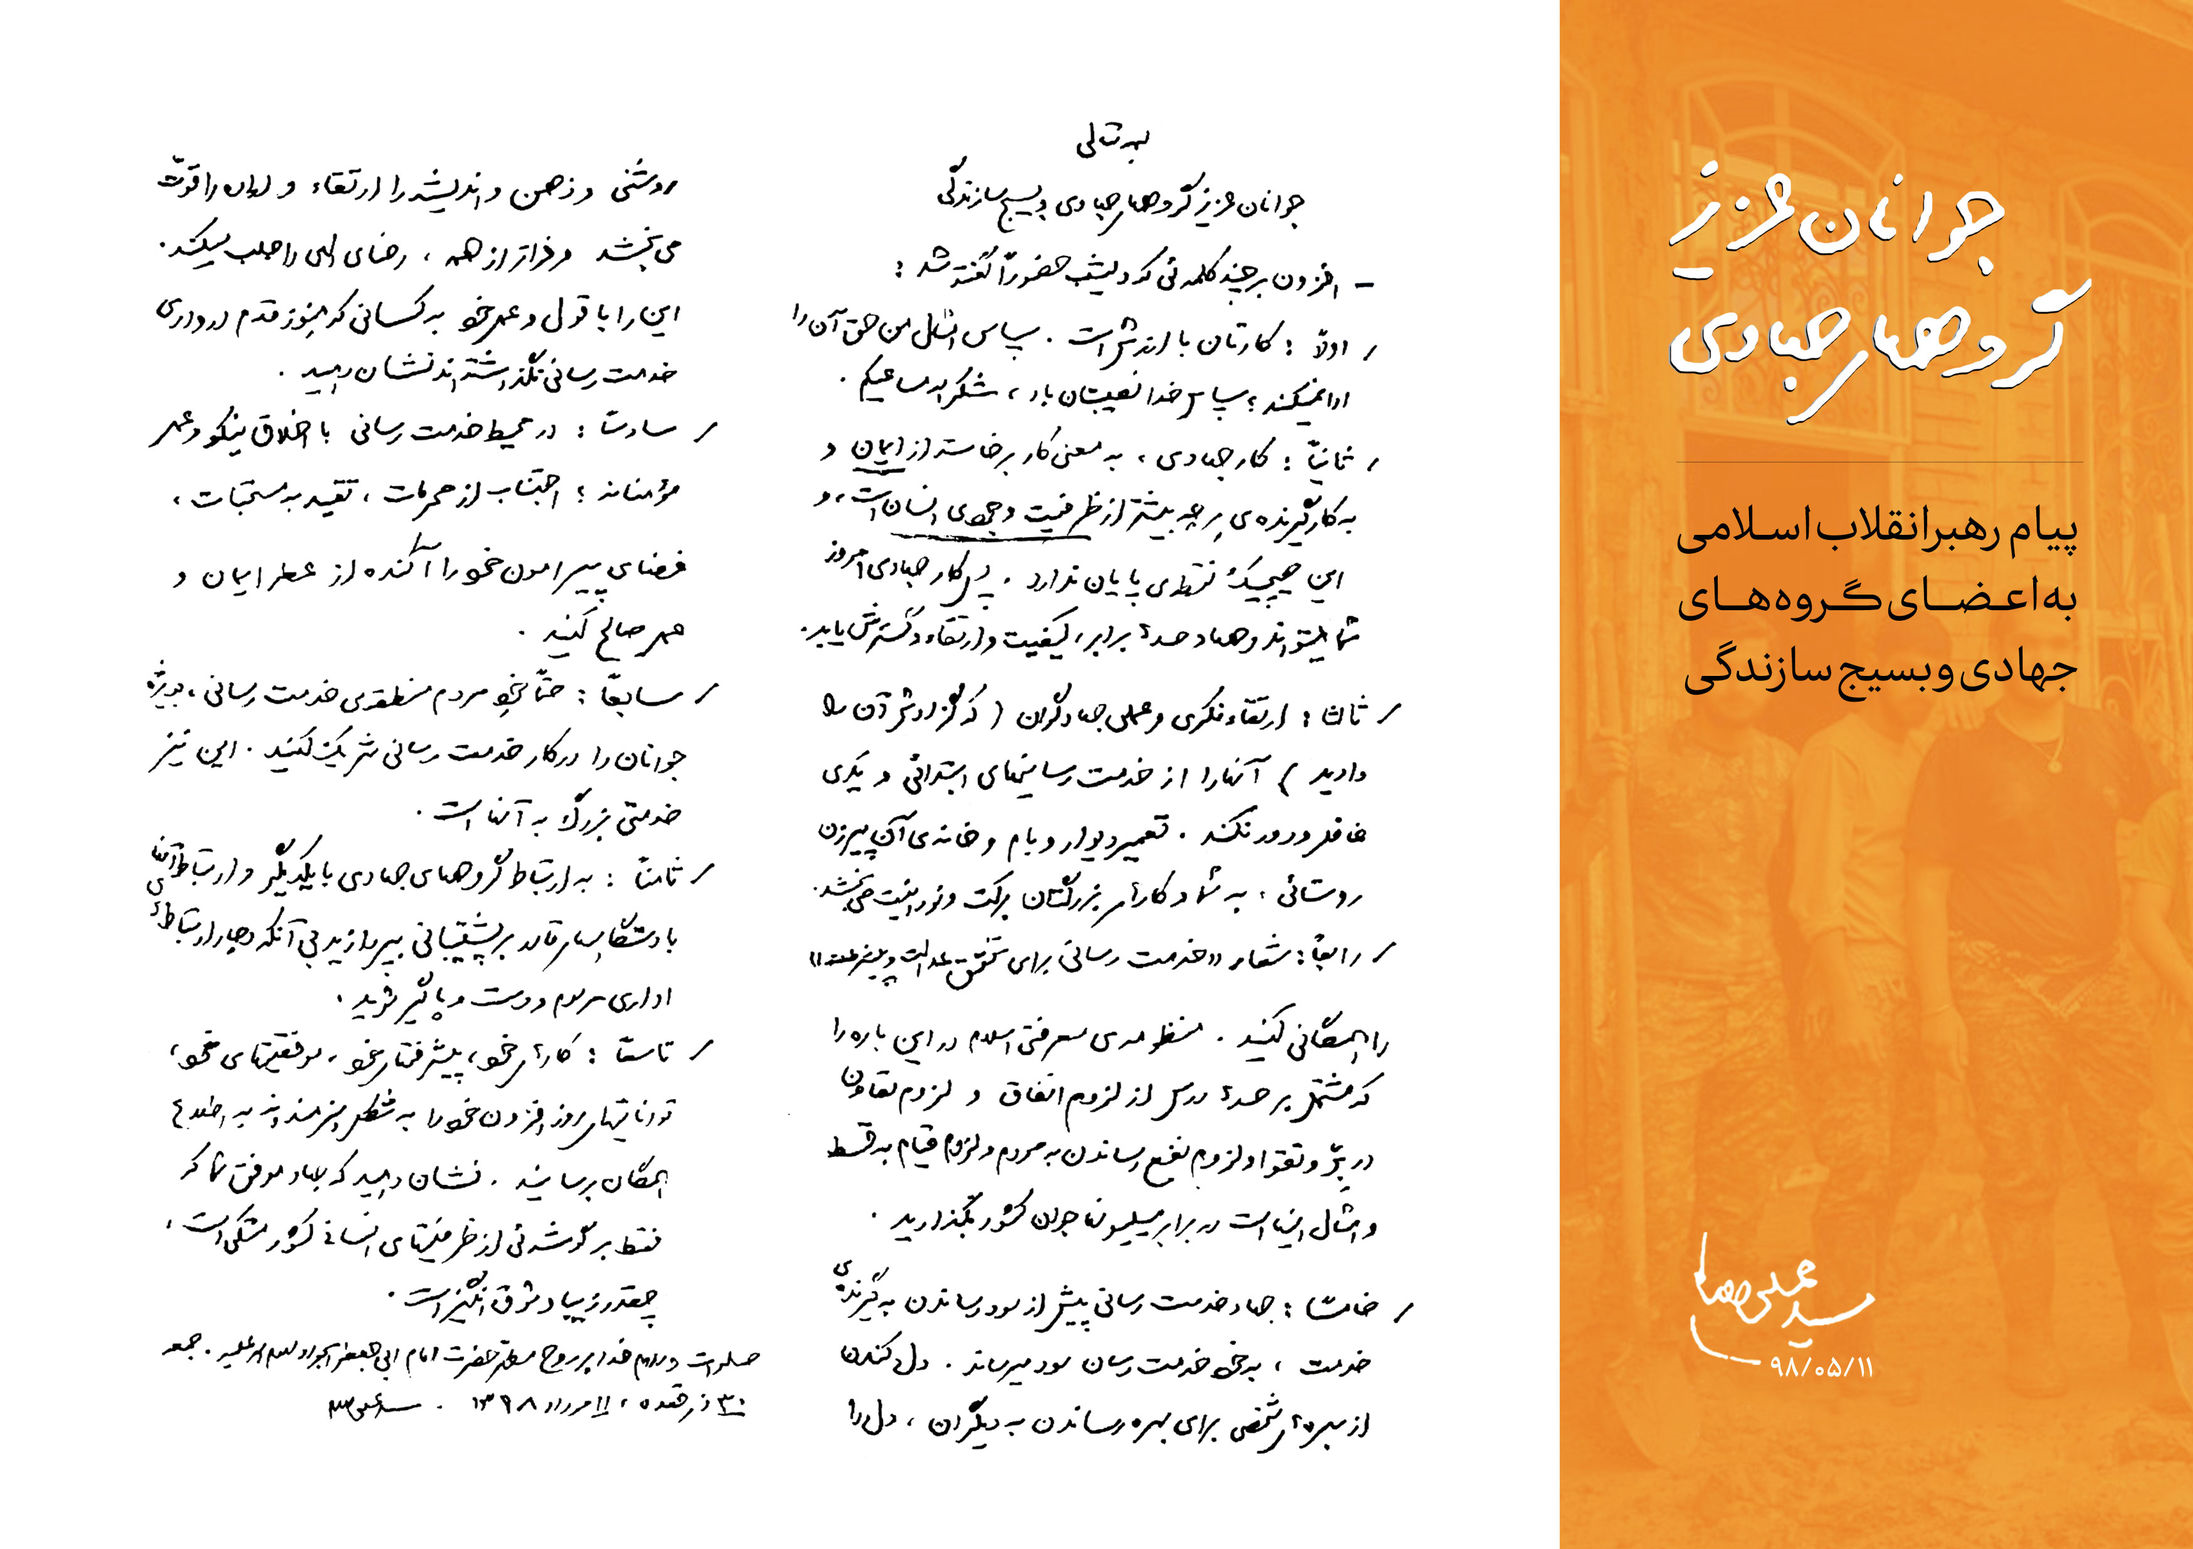 جوانان عزیز
گروههای جهادی
پیام رهبر انقلاب اسلامی
به اعضای گروه‌های
جهادی و بسیج سازندگی
سیدعلی خامنه‌ای
۹۸/۰۵/۱۱
بسمه تعالی
جوانان عزیز گروههای جهادی و بسیج سازندگی
- افزون بر چند کلمه‌ئی که دیشب حضوراً گفته شد :
/ اولاً : کارتان با ارزش است . سپاس امثال من حق آن را
ادا نمیکند ؛ سپاس خدا نصیبتان باد ، شکر الله مساعیکم .
/ ثانیاً : کار جهادی ، به معنی کار برخاسته از ایمان و
به کار گیرنده‌ی هر چه بیشتر از ظرفیت وجودی انسان است ، و
این هیچیک نقطه‌ی پایان ندارد . پس کار جهادی امروز
شما میتواند و باید صدها برابر ، کیفیت و ارتقاء و گسترش یابد .
/ ثالثاً : ارتقاء فکری و عملی جهادگران ( که گزارش آن را
دادید ) آنها را از خدمت رسانیهای ابتدائی و یدی
غافل و دور نکند . تعمیر دیوار و بام و خانه‌ی آن پیرزن
روستائی ، به شما و کارهای بزرگتان برکت و نورانیت می‌بخشد .
/ رابعاً : شعار «خدمت رسانی برای تحقق عدالت و پیشرفت»
را همگانی کنید . منظومه‌ی معرفتی اسلام در این باره را
که مشتمل بر صدها درس از لزوم انفاق و لزوم تعاون
در برّ و تقوا و لزوم نفع رساندن به مردم و لزوم قیام به قسط
و امثال اینها است در برابر میلیونها جوان کشور بگذارید .
/ خامساً : جهاد خدمت رسانی پیش از سود رساندن به گیرنده‌ی
خدمت ، به خود خدمت رسان سود میرساند . دل کندن
از بهره‌های شخصی برای بهره رساندن به دیگران ، دل را
روشنی و ذهن و اندیشه را ارتقاء و ایمان را قوّت
می‌بخشد و فراتر از همه ، رضای الهی را جلب میکند .
این را با قول و عمل خود به کسانی که هنوز قدم در وادی
خدمت رسانی نگذاشته‌اند نشان دهید .
/ سادساً : در محیط خدمت رسانی با اخلاق نیکو و عمل
مؤمنانه ؛ اجتناب از محرمات ، تقید به مستحبات ،
فضای پیرامون خود را آکنده از عطر ایمان و
عمل صالح کنید .
/ سابعاً : حتماً خود مردم منطقه‌ی خدمت رسانی ، بویژه
جوانان را در کار خدمت رسانی شریک کنید . این نیز
خدمتی بزرگ به آنها است .
/ ثامناً : به ارتباط گروههای جهادی با یکدیگر و ارتباط آنها
با دستگاههای قادر بر پشتیبانی بپردازید بی آنکه دچار ارتباطهای
اداری مرسوم و دست و پا گیر شوید .
/ تاسعاً : کارهای خود ، پیشرفتهای خود ، موفقیتهای خود ،
توانائیهای روزافزون خود را به شکل هنرمندانه به اطلاع
همگان برسانید . نشان دهید که جهاد موفق شما که
فقط بر گوشه‌ئی از ظرفیتهای انسانی کشور متکی است ،
چقدر زیبا و شوق انگیز است .
صلوات و سلام خدا بر روح مطهر حضرت امام ابی جعفر الجواد سلام الله علیه . جمعه
۳۰ ذی‌قعده ، ۱۱ مرداد ۱۳۹۸ . سیدعلی خامنه‌ای